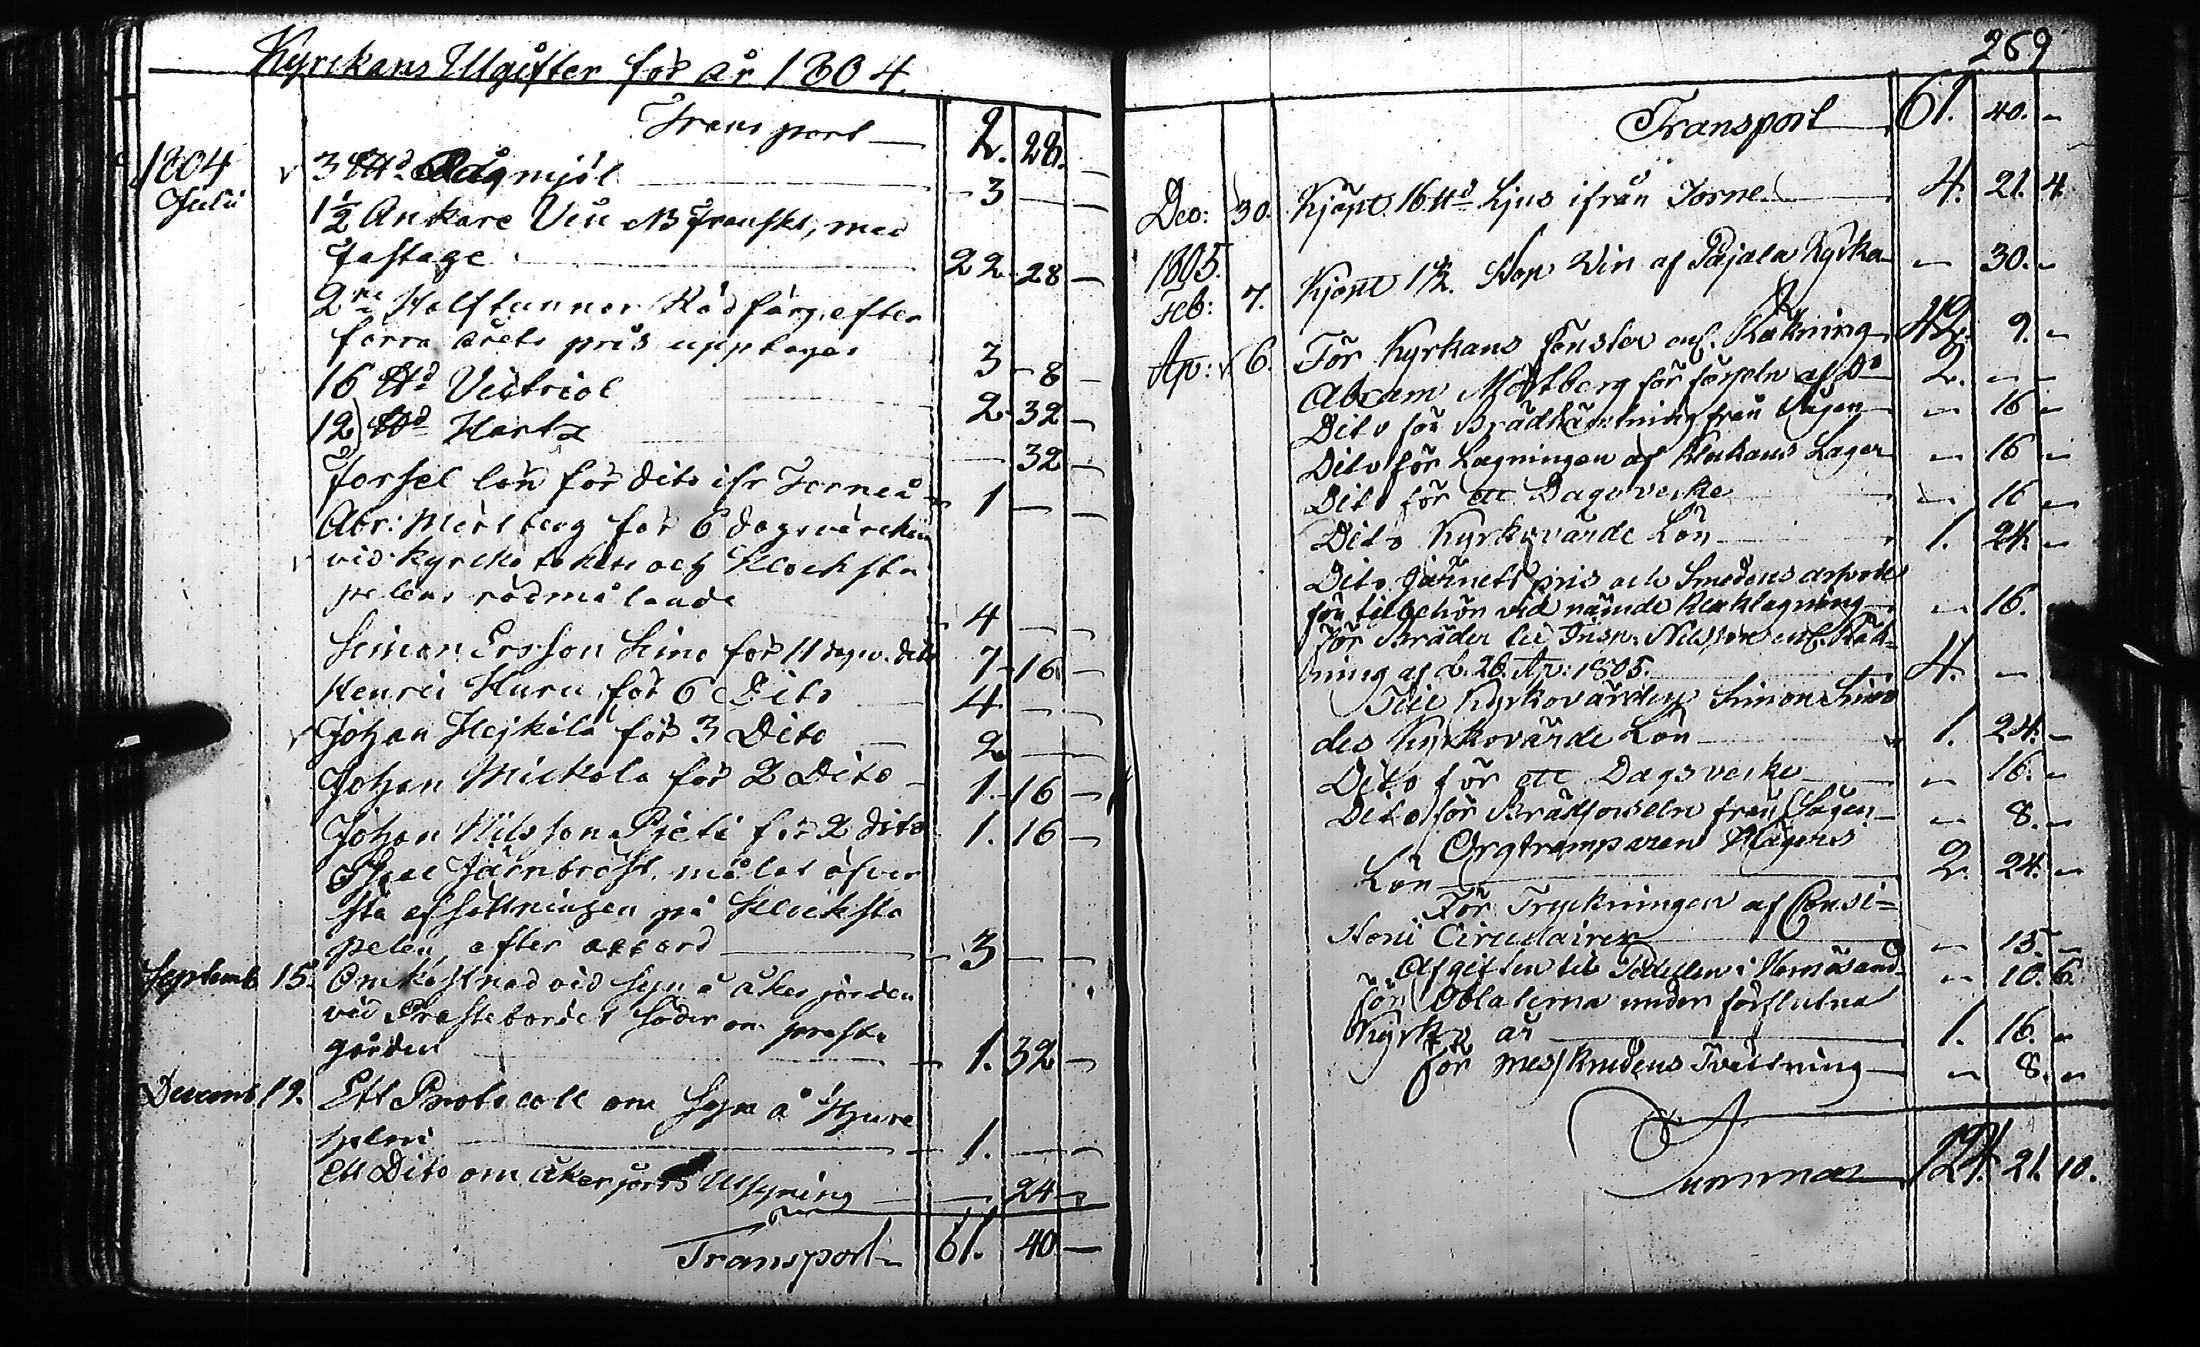 Kyrckans Utgifter för år 1804.
Transport 2. 28. —
1804 Julii 3 ℔d Rågmjöl — 3 — —
1½ Ankare Vin NB franskt, med
fastage 22 - 28 —
2ne Halftunnor Rödfärg, efter
förra årets pris upptages 3 - 8 —
16 ℔d Victriol 2 - 32 —
12 ℔d Hartz — 32 —
Forsel lön för dito ifr Torneå 1 — —
Abr: Mörtberg för 6 dagsvercken
vid kyrcko takets och Klocksta
pelens rödmålande 4 — —
Simon Ersson Simo för 11 dagsv. dito 7 - 16 —
Henric Huru för 6 Dito 4 — —
Johan Hejkilä för 3 Dito 2 — —
Johan Mickola för 2 Dito 1. - 16 —
Johan Nilsson Pjeti för 2 dito 1. 16 —
Isac Järnbröst målat öfver
sta afsättningen på Klocksta
pelen, efter accord 3 — —
Septemb 15. Omkostnad vid syn å åker jorden
vid Prästebordet söder om prästa
gården 1. 32 —
Decemb 19. Ett Protocoll om Syn å
1. — —
Ett Dito om åkerjords Utsyning — 24 —
Transport 61. 40 —
269
Transport 61. 40. —
Dec: 30. Kjöpt 16 ℔d Ljus ifrån Torne 4. 21. 4.
1805.
Feb: 7. Kjöpt 1½. Stop Win af Pajala Kyrka — 30. —
Ap: 6. För Kyrkans fönster enl. Räkning 42. 9. —
Abram Mörtberg för forseln af Do 2. — —
Dito för Brädhämtning från Sågen — 16 —
Dito för Lagningen af Klockans Lager — 16 —
Dito för ett Dagsverke — 16 —
Dito Kyrkovärde Lön 1. 24. —
Dito Järnets pris och Smedens arbete
för tillbehör vid nämde Klocklagning — 16. —
för Bräder till Insp: Nilsson enl. Räk-
ning af d. 26. Ap: 1805. 4. —
Till Kyrkovärden Simon Simo
des Kyrkovärde Lön 1. 24. —
Dito för ett Dagsverke — 16. —
Dito för Brädforseln från Sågen — 8. —
Orgtramparen Mägenis
Lön 2. 24. —
För Tryckningen af Consi-
storii Circulairer — 15. —
Afgiften till Pedellen i Hernösand — 10. 6.
för Oblaterna under förflutna
Kyrko år 1. 16. —
för messkrudens Tvättning — 8. —
Summa 124. 21. 10.